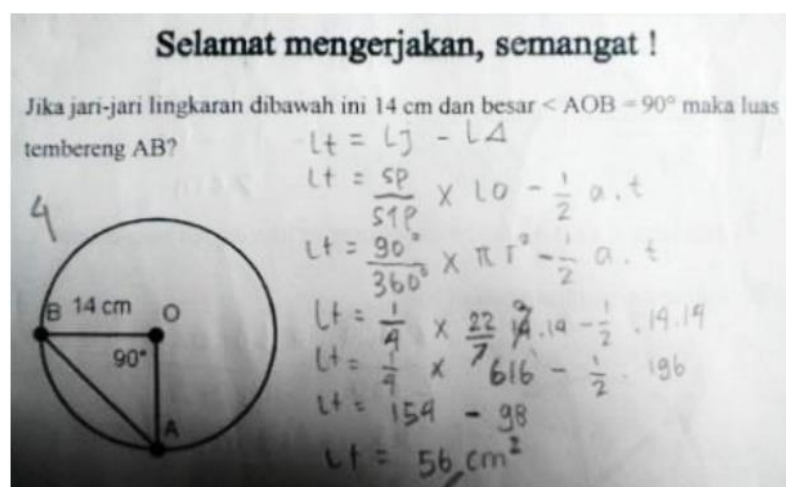 Selamat mengerjakan, semangat !
Jika jari-jari lingkaran dibawah ini 14 cm dan besar < AOB = 90° maka luas
tembereng AB?
Lt = LJ - LΔ
Lt = SP/STP × LO - 1/2 a.t
Lt = 90°/360° × π r² - 1/2 a.t
Lt = 1/4 × 22/7 14.14 - 1/2 .14.14
Lt = 1/4 × 616 - 1/2 . 196
Lt = 154 - 98
Lt = 56 cm²
4
B 14 cm O
90°
A